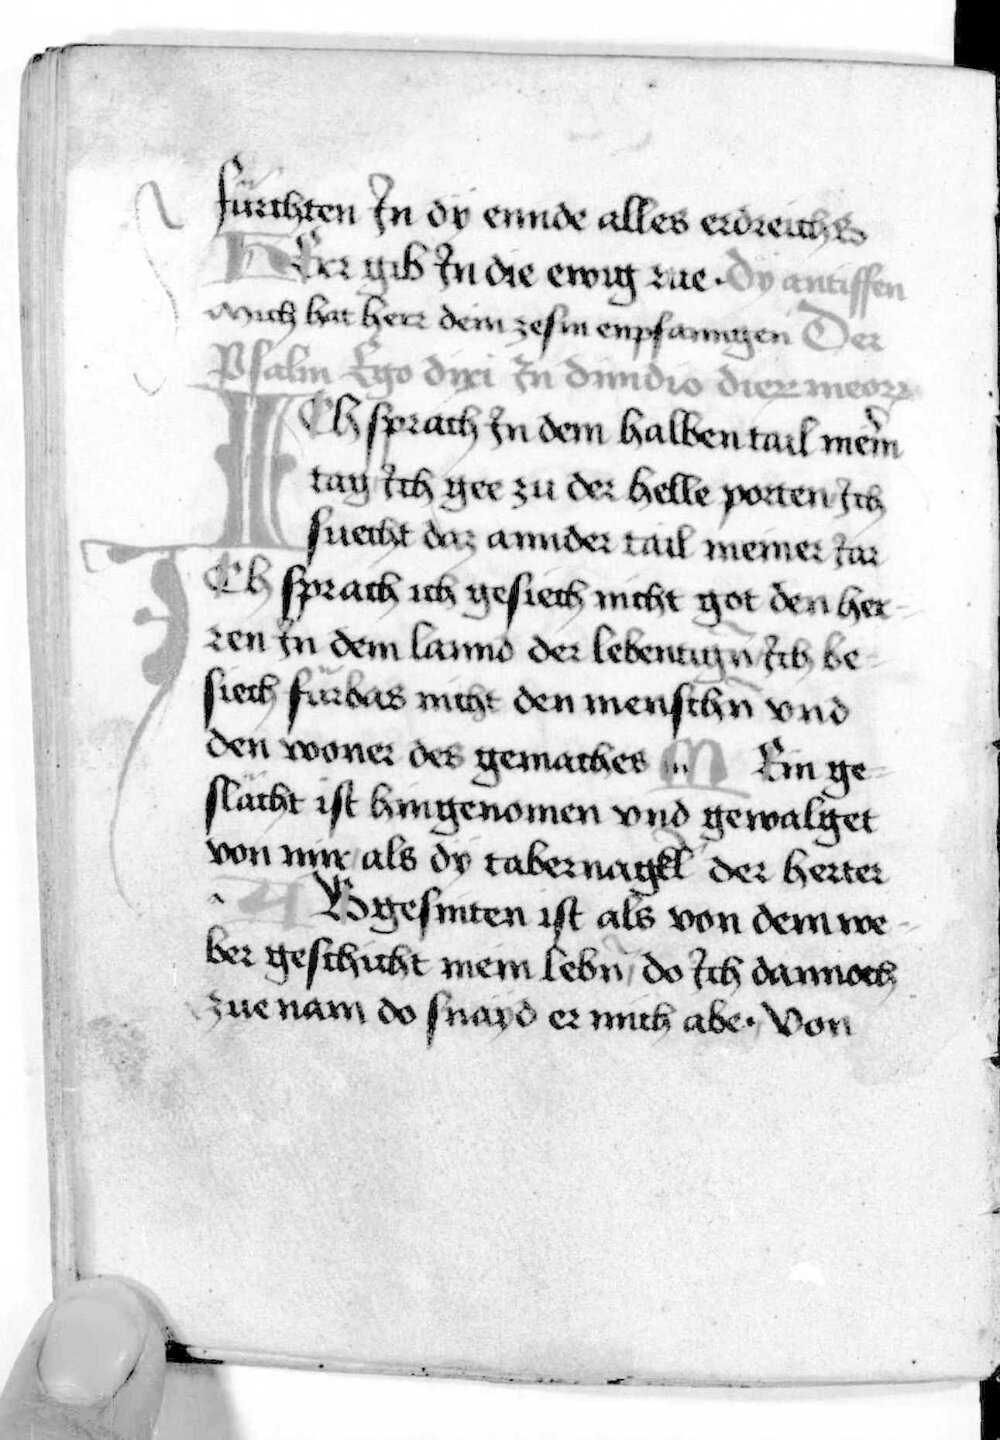 fürchten In dÿ ennde alles erdreichs
HEer gib In die ewig rue · Dÿ antiffen
Mich hat herr dein zesm enpfanngen Der
Psalm Ego dixi In dimidio dierum meorum
ICh sprach In dem halben tail meiner
tag Ich gee zu der helle porten Ich
suecht daz annder tail meiner Iar
ICh sprach ich gesiech nicht got den her-
ren In dem lannd der lebentign̄ Ich be-
siech fürbas nicht den menschn̄ vnd
den woner des gemaches M Ein ge-
slächt ist hingenomen vnd gewalget
von mir als dÿ tabernagkl der herter
A Bgesniten ist als von dem we-
ber geschicht mein lebn̄ do Ich dannoch
zue nam do snaÿd er mich abe · Von